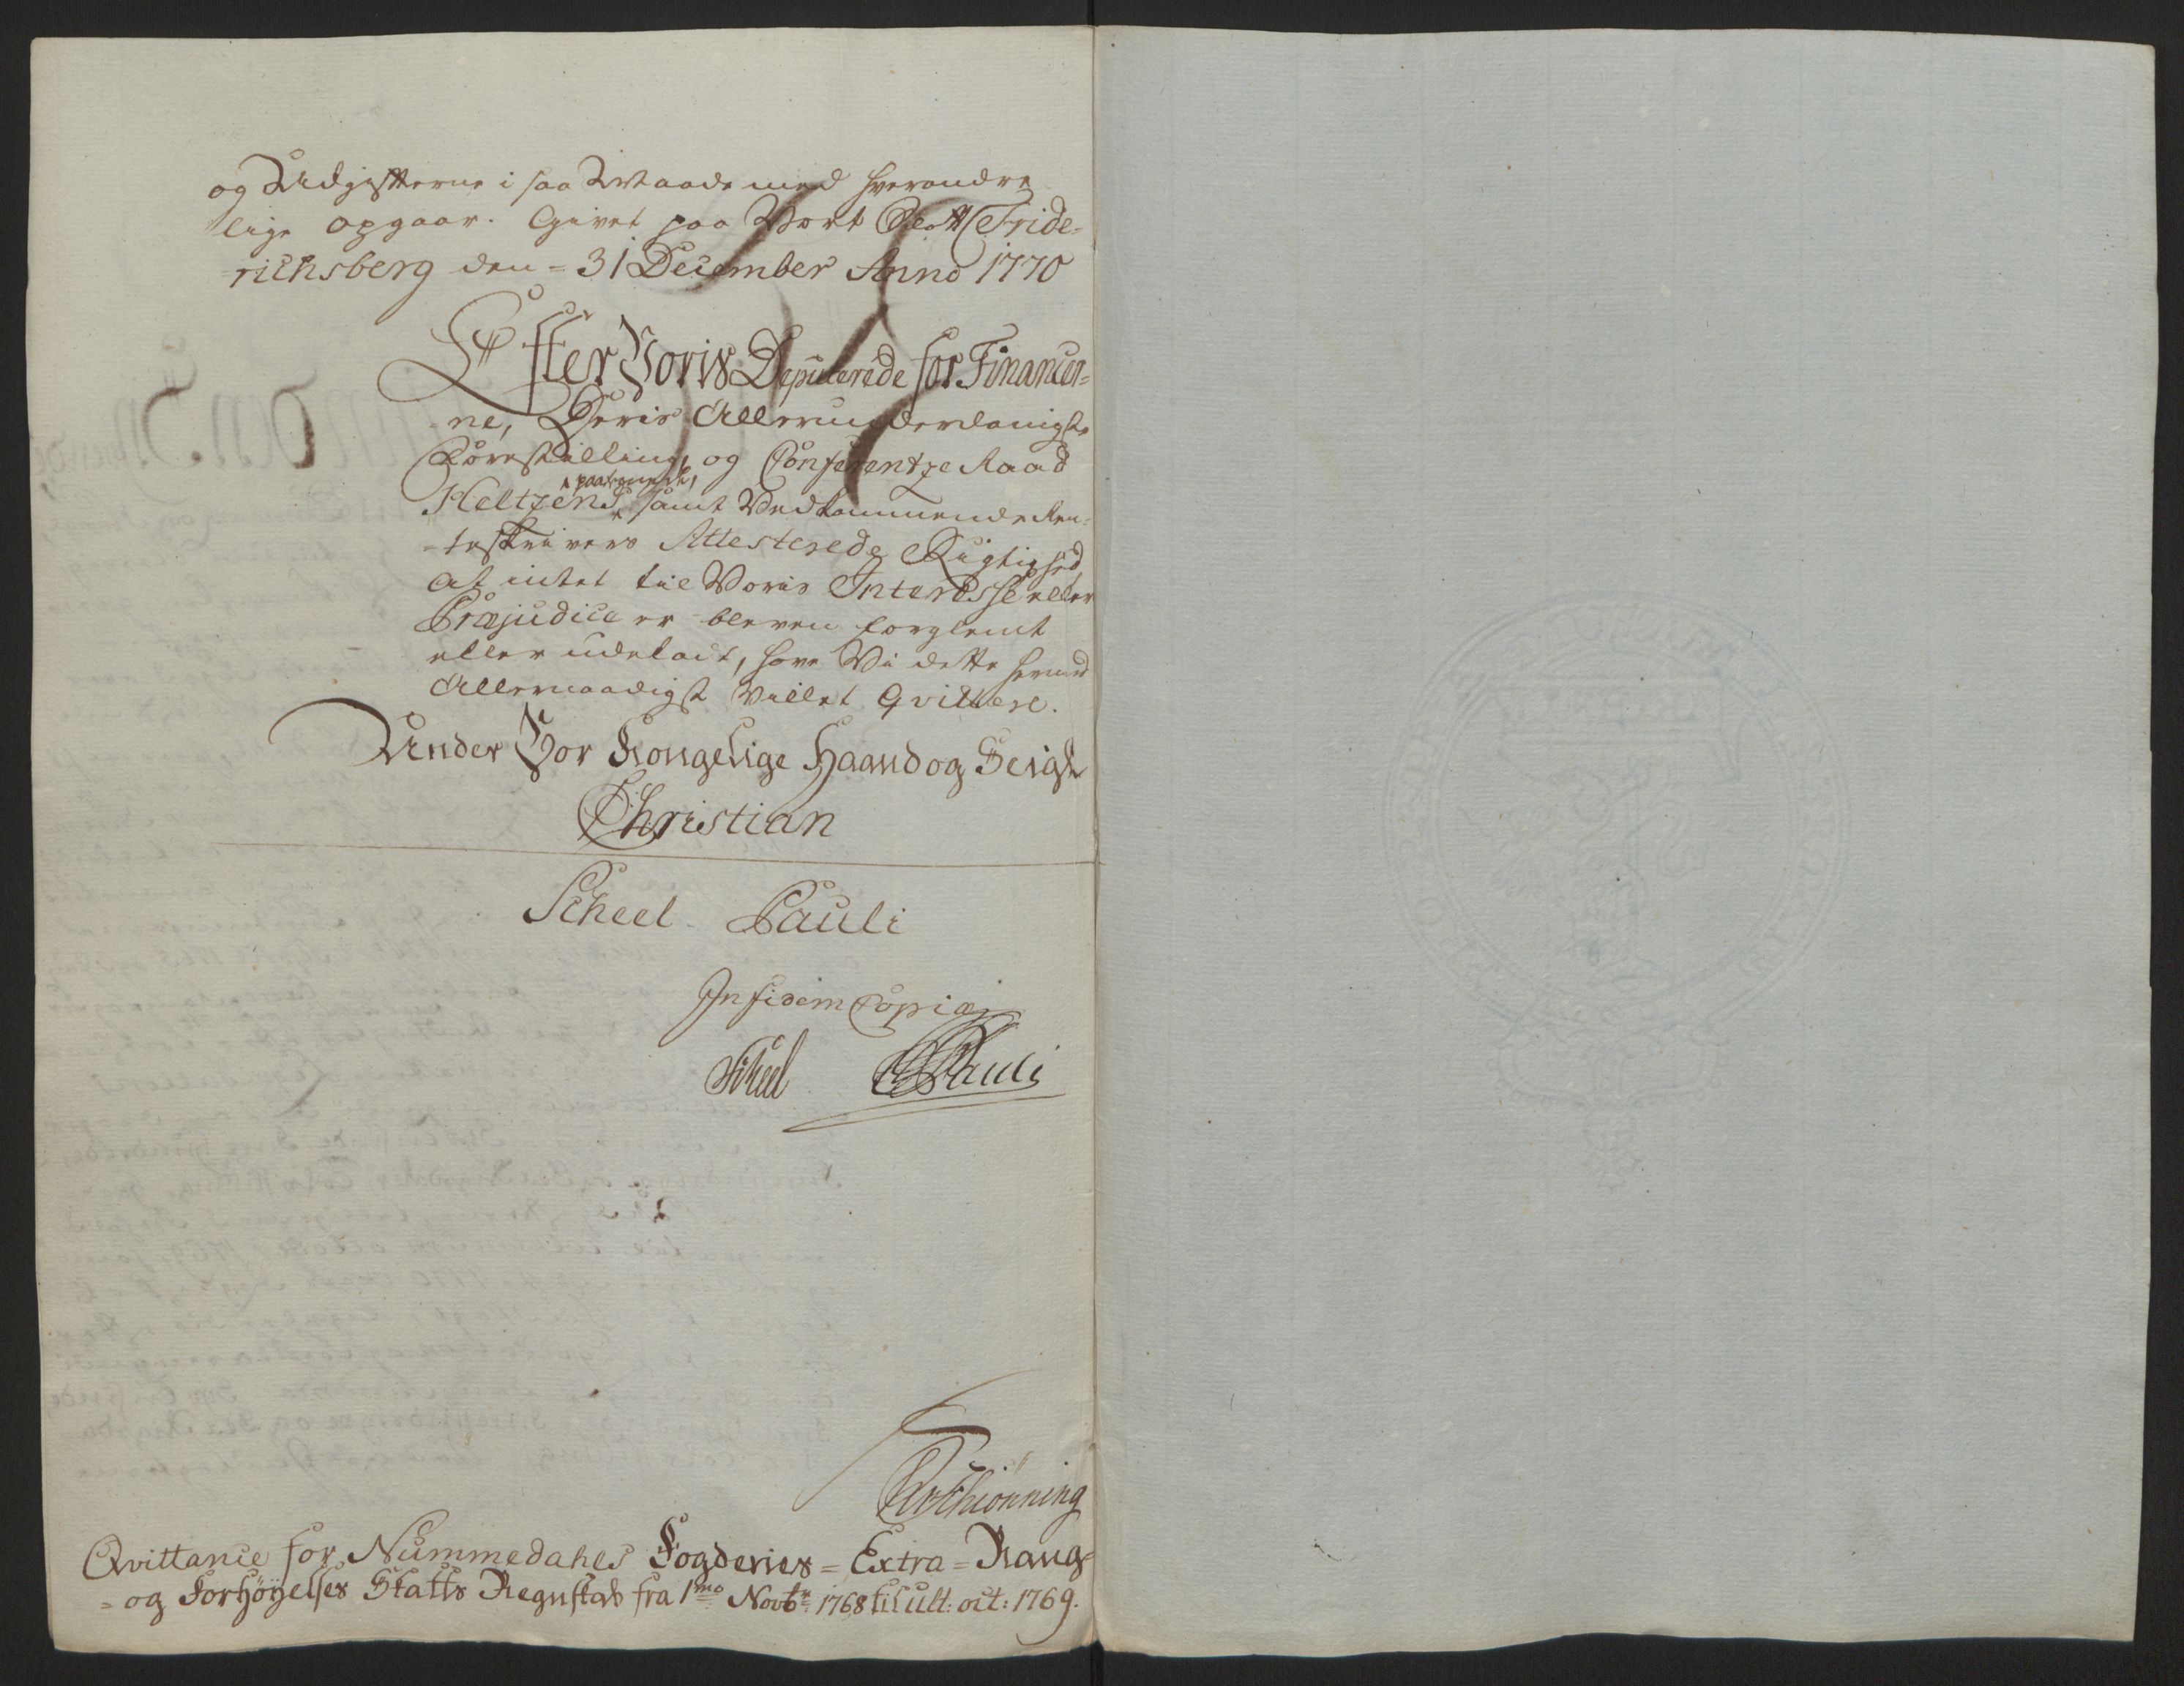 og Udgifterne i saa Maade med hverandre
lige opgaar. Givet paa Vort Slott Fride-
richsberg den = 31 December Anno 1770
Effter Voris Deputerede for Financer-
ne, Deris Allerunderdanigste
Forestilling, og Conferentze Raad
paategnede,
Heltzens samt Vedkommende Ren-
-teskrivers Attesterede Rigtighed,
at intet til Voris Interesse eller
Præjudice er bleven forglemt
eller udeladt, have Vi dette hermed
Allernaadigst villet Qvittere.
Under Vor Kongelige Haand og Seigl
Christian
Scheel Pauli
In fidem Copiæ
Scheel Pauli
Qvittance for Nummedahls Fogderies = Extra = Rang-
= og Forhöyelses Skatts Regnskab fra 1mo Novbr: 1768 til ult: oct: 1769.